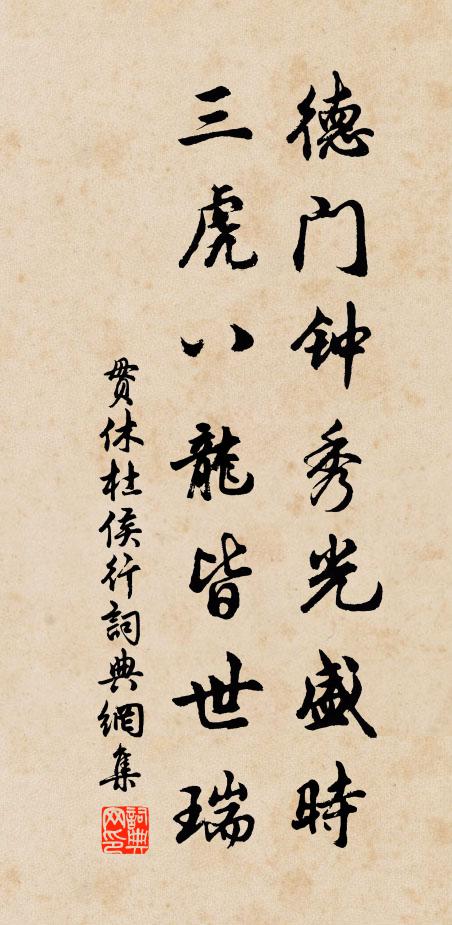 德门钟秀光盛時
三虎八龍皆世瑞
貫休杜侯行詞典網集
詞典网印